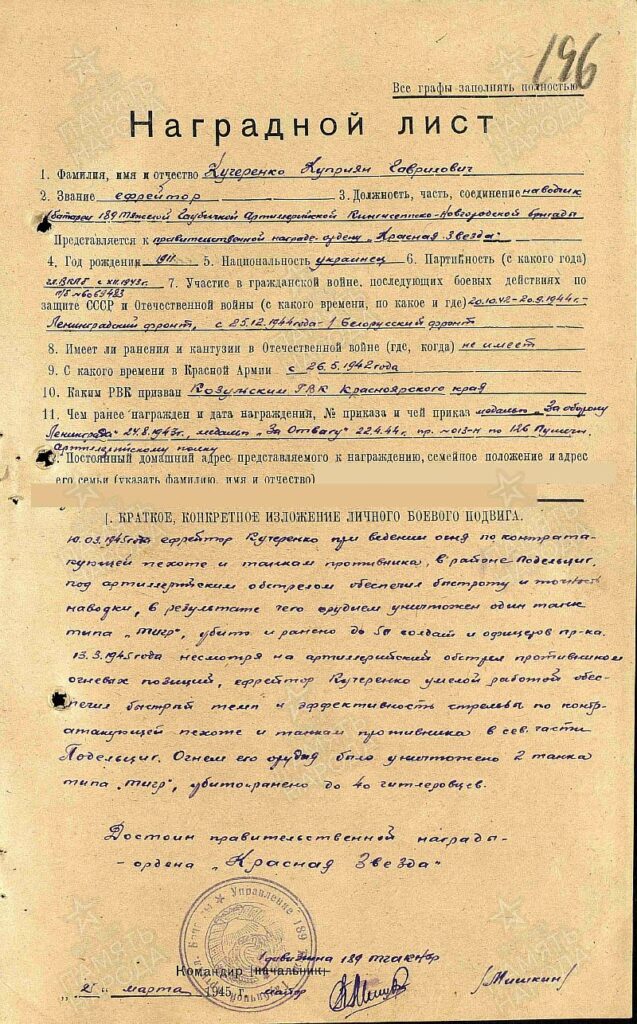 196
Все графы заполнять полностью
Наградной лист
1. Фамилия, имя и отчество Кучеренко Куприян Гаврилович
2. Звание ефрейтор 3. Должность, часть, соединение наводчик
батареи 189 Тяжелой Гаубичной Артиллерийской Кингисеппско-Новгородской бригады
Представляется к правительственной награде ордену „Красная Звезда"
4. Год рождения 1911 5. Национальность украинец 6. Партийность (с какого года)
чл. ВКПб с XII.1943г. 7. Участие в гражданской войне, последующих боевых действиях по
п/б №6069483
защите СССР и Отечественной войны (с какого времени, по какое и где) 20.10.42-20.9.1944г.-
Ленинградский фронт, с 25.12.1944года-1 Белорусский фронт
8. Имеет ли ранения и кантузии в Отечественной войне (где, когда) не имеет
9. С какого времени в Красной Армии с 26.5.1942года
10. Каким РВК призван ГВК Красноярского края
11. Чем ранее награжден и дата награждения, № приказа и чей приказ медалью „За оборону
Ленинграда" 24.8.1943г., медалью „За Отвагу" 22.4.44г. пр. №013-н по 126 Пушечн.
артиллерийскому полку
12. Постоянный домашний адрес представляемого к награждению, семейное положение и адрес
его семьи (указать фамилию, имя и отчество)
I. КРАТКОЕ, КОНКРЕТНОЕ ИЗЛОЖЕНИЕ ЛИЧНОГО БОЕВОГО ПОДВИГА.
10.03.1945года ефрейтор Кучеренко при ведении огня по контрата-
кующей пехоте и танкам противника, в районе Подельциг,
под артиллерийским обстрелом обеспечил быстроту и точность
наводки, в результате чего орудием уничтожен один танк
типа „тигр", убито и ранено до 50 солдат и офицеров пр-ка.
13.3.1945года несмотря на артиллерийский обстрел противником
огневых позиций, ефрейтор Кучеренко умелой работой обес-
печил быстрый темп и эффективность стрельбы по контр-
атакующей пехоте и танкам противника в сев. части
Подельциг. Огнем его орудия было уничтожено 2 танка
типа „тигр", убито и ранено до 40 гитлеровцев.
Достоин правительственной награды-
-ордена „Красная Звезда"
Управление 189
1 дивизиона 189 тгакнбр
Командир (начальник)
„21" марта 1945 г. майор /Мишкин/
ПАМЯТЬ НАРОДА